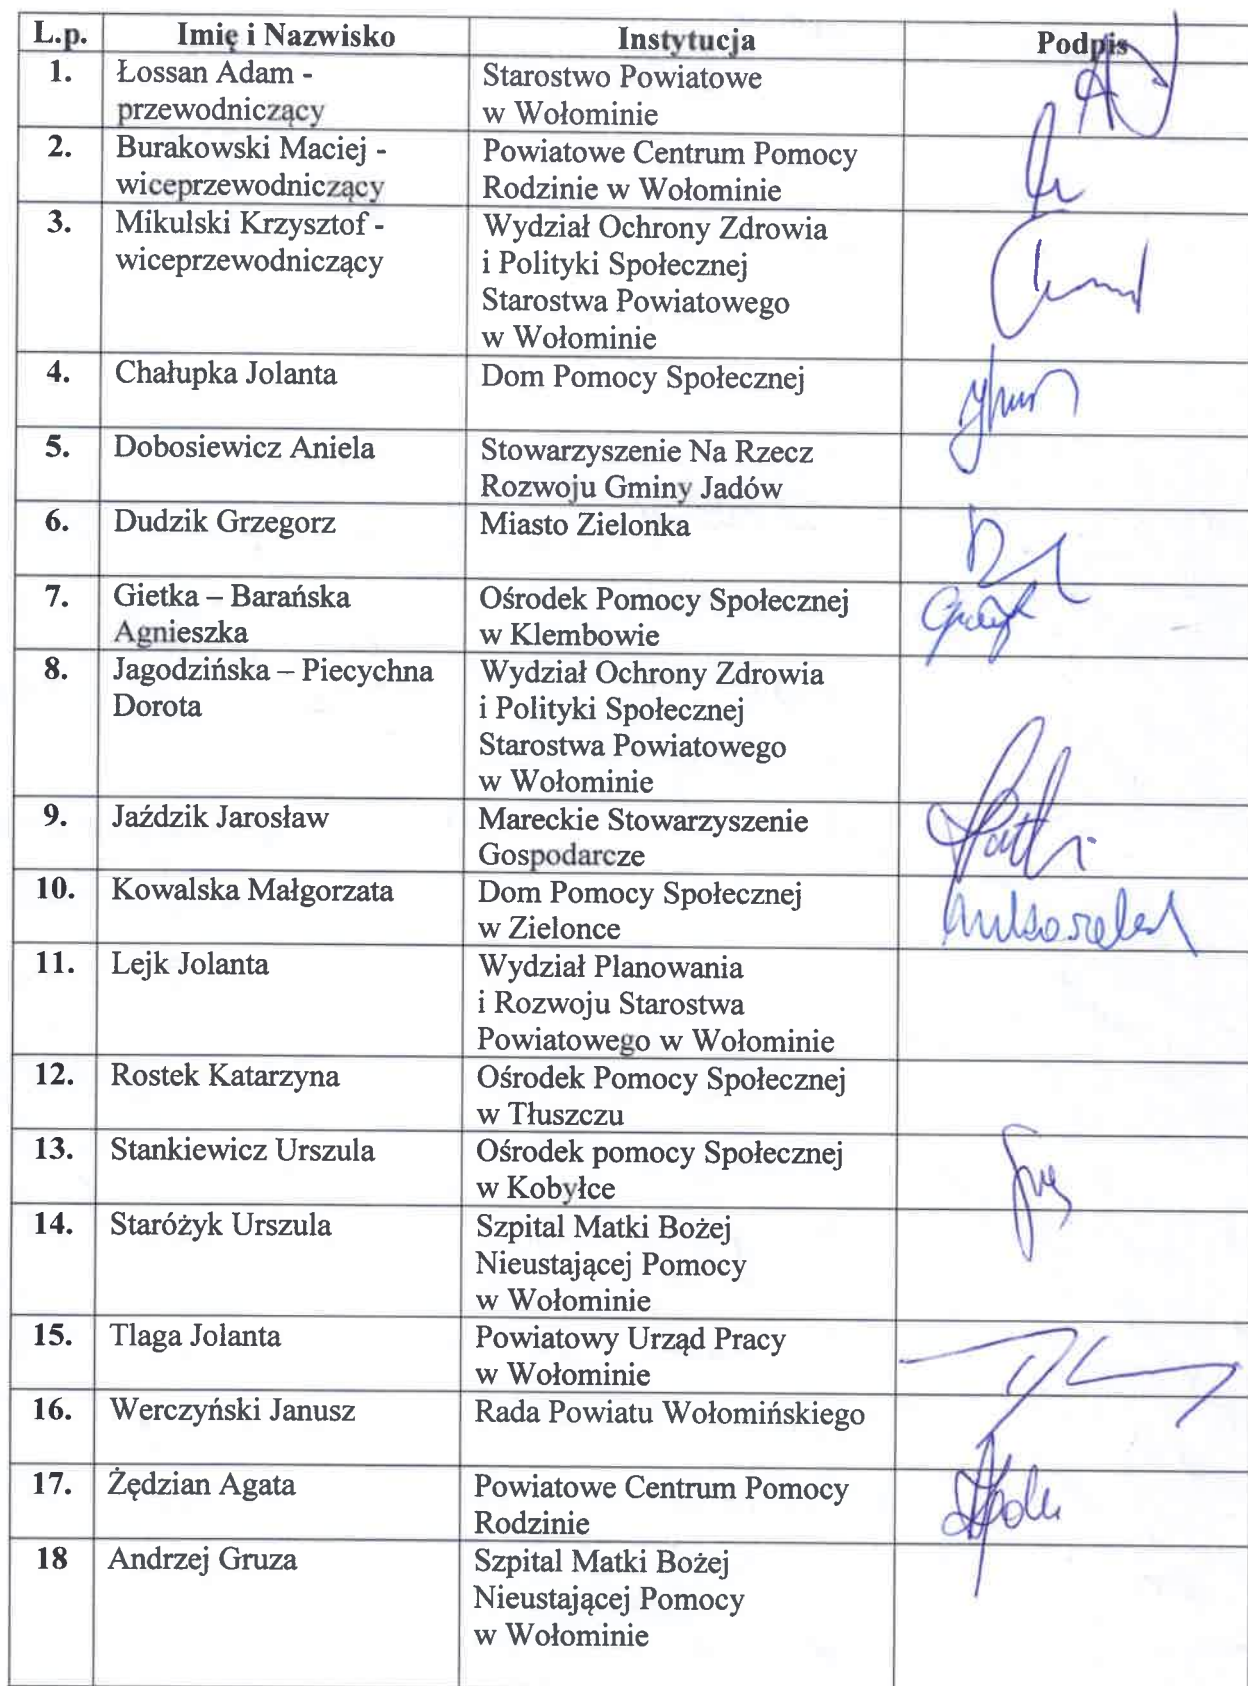 L.p. Imię i Nazwisko Instytucja Podpis
1. Łossan Adam - Starostwo Powiatowe
przewodniczący w Wołominie
2. Burakowski Maciej - Powiatowe Centrum Pomocy
wiceprzewodniczący Rodzinie w Wołominie
3. Mikulski Krzysztof - Wydział Ochrony Zdrowia
wiceprzewodniczący i Polityki Społecznej
Starostwa Powiatowego
w Wołominie
4. Chałupka Jolanta Dom Pomocy Społecznej
5. Dobosiewicz Aniela Stowarzyszenie Na Rzecz
Rozwoju Gminy Jadów
6. Dudzik Grzegorz Miasto Zielonka
7. Gietka – Barańska Ośrodek Pomocy Społecznej
Agnieszka w Klembowie
8. Jagodzińska – Piecychna Wydział Ochrony Zdrowia
Dorota i Polityki Społecznej
Starostwa Powiatowego
w Wołominie
9. Jaździk Jarosław Mareckie Stowarzyszenie
Gospodarcze
10. Kowalska Małgorzata Dom Pomocy Społecznej
w Zielonce
11. Lejk Jolanta Wydział Planowania
i Rozwoju Starostwa
Powiatowego w Wołominie
12. Rostek Katarzyna Ośrodek Pomocy Społecznej
w Tłuszczu
13. Stankiewicz Urszula Ośrodek pomocy Społecznej
w Kobyłce
14. Staróżyk Urszula Szpital Matki Bożej
Nieustającej Pomocy
w Wołominie
15. Tlaga Jolanta Powiatowy Urząd Pracy
w Wołominie
16. Werczyński Janusz Rada Powiatu Wołomińskiego
17. Żędzian Agata Powiatowe Centrum Pomocy
Rodzinie
18 Andrzej Gruza Szpital Matki Bożej
Nieustającej Pomocy
w Wołominie